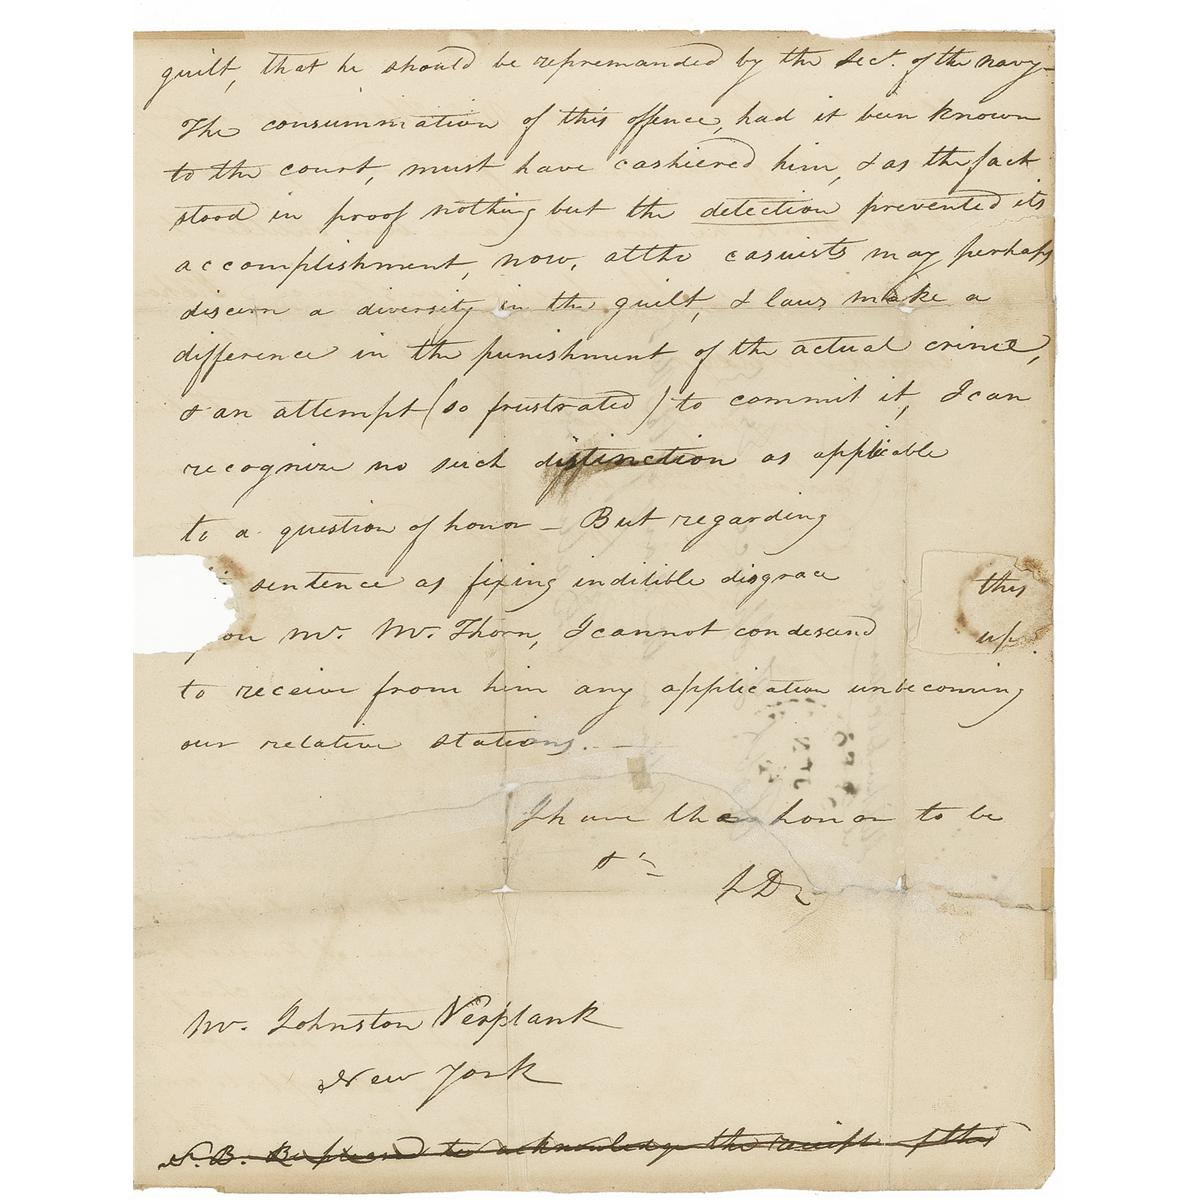 guilt, that he should be repremanded by the Sec.t of the navy-
The consummation of this offence, had it been known
to the court, must have cashiered him, & as the fact
stood in proof nothing but the detection prevented its
accomplishment, now, altho casuists may perhaps
discern a diversity in the guilt, & laws make a
difference in the punishment of the actual crime,
& an attempt (so frustrated) to commit it, I can
recognize no such distinction as applicable
to a question of honor — But regarding
sentence as fixing indilible disgrace this
on Mr. Mc.Thorn, I cannot condescend up
to receive from him any application unbecoming
our relative stations. —
I have the honor to be
&c
Mr. Johnston Verplank
New York
N.B. Be pleased to acknowledge the receipt of this